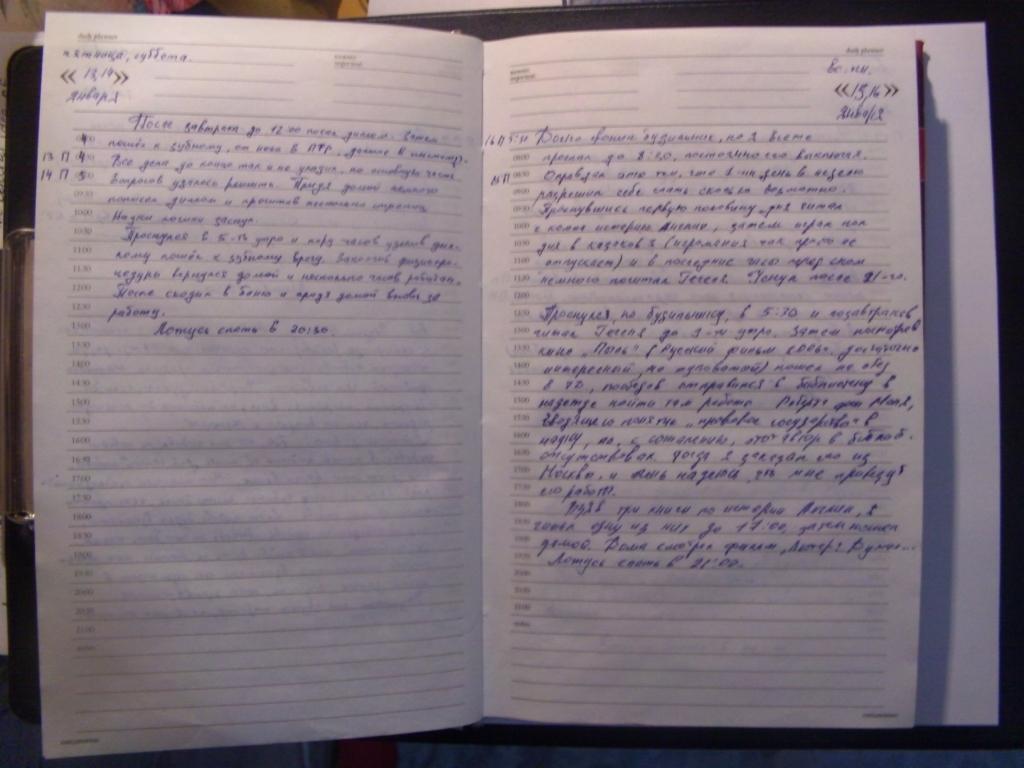 daily planner
пятница, суббота.
важно
important
« 13,14 »
января
После завтрака до 12:00 писал диплом. Затем
пошёл к зубному, от него в ПФР, дальше в
13 П 4 Все дела до конца так и не уладил, но основную часть
14 П 5 вопросов удалось решить. Придя домой немного
пописал диплом и прочитав несколько страниц
Науки логики заснул.
Проснулся в 5 утра и пару часов уделив дип-
лому пошёл к зубному врачу. Закончив физиопро-
цедуры вернулся домой и несколько часов работал.
После сходил в баню и придя домой вновь за
работу.
Ложусь спать в 20:30.
daily planner
важно
important
вс. пн.
« 15,16 »
января
Долго звонил будильник, но я всё же
проспал до 8:30, постоянно его выключая.
15 П Оправдал это тем, что 1 день в неделю
разрешил себе спать сколько возможно.
Проснувшись первую половину дня читал
историю Англии, затем играл пол
дня в казаков 3 (игромания так просто не
отпускает) и в последние часы перед сном
немного почитал Гегеля. Уснул после 21-00.
Проснулся, по будильнику, в 5:30 и позавтракав
читал Гегеля до 9 утра. Затем посмотрев
кино „Пыль" (Русский фильм 2005г. достаточно
интересный, но туповатый) пошёл на обед
в 12, пообедав отправился в библиотеку в
надежде найти там работы Роберта фон Моля,
вводящего понятие „правовое государство" в
науку, но, к сожалению, этот автор в библиот.
отсутствовал. Тогда я заказал его из
Москвы, и есть надежда, что мне привезут
его работы.
Взяв три книги по истории Англии, я
читал одну из них до 17:00, затем пошёл
домой. Дома смотрел фильм
Ложусь спать в 21:00.